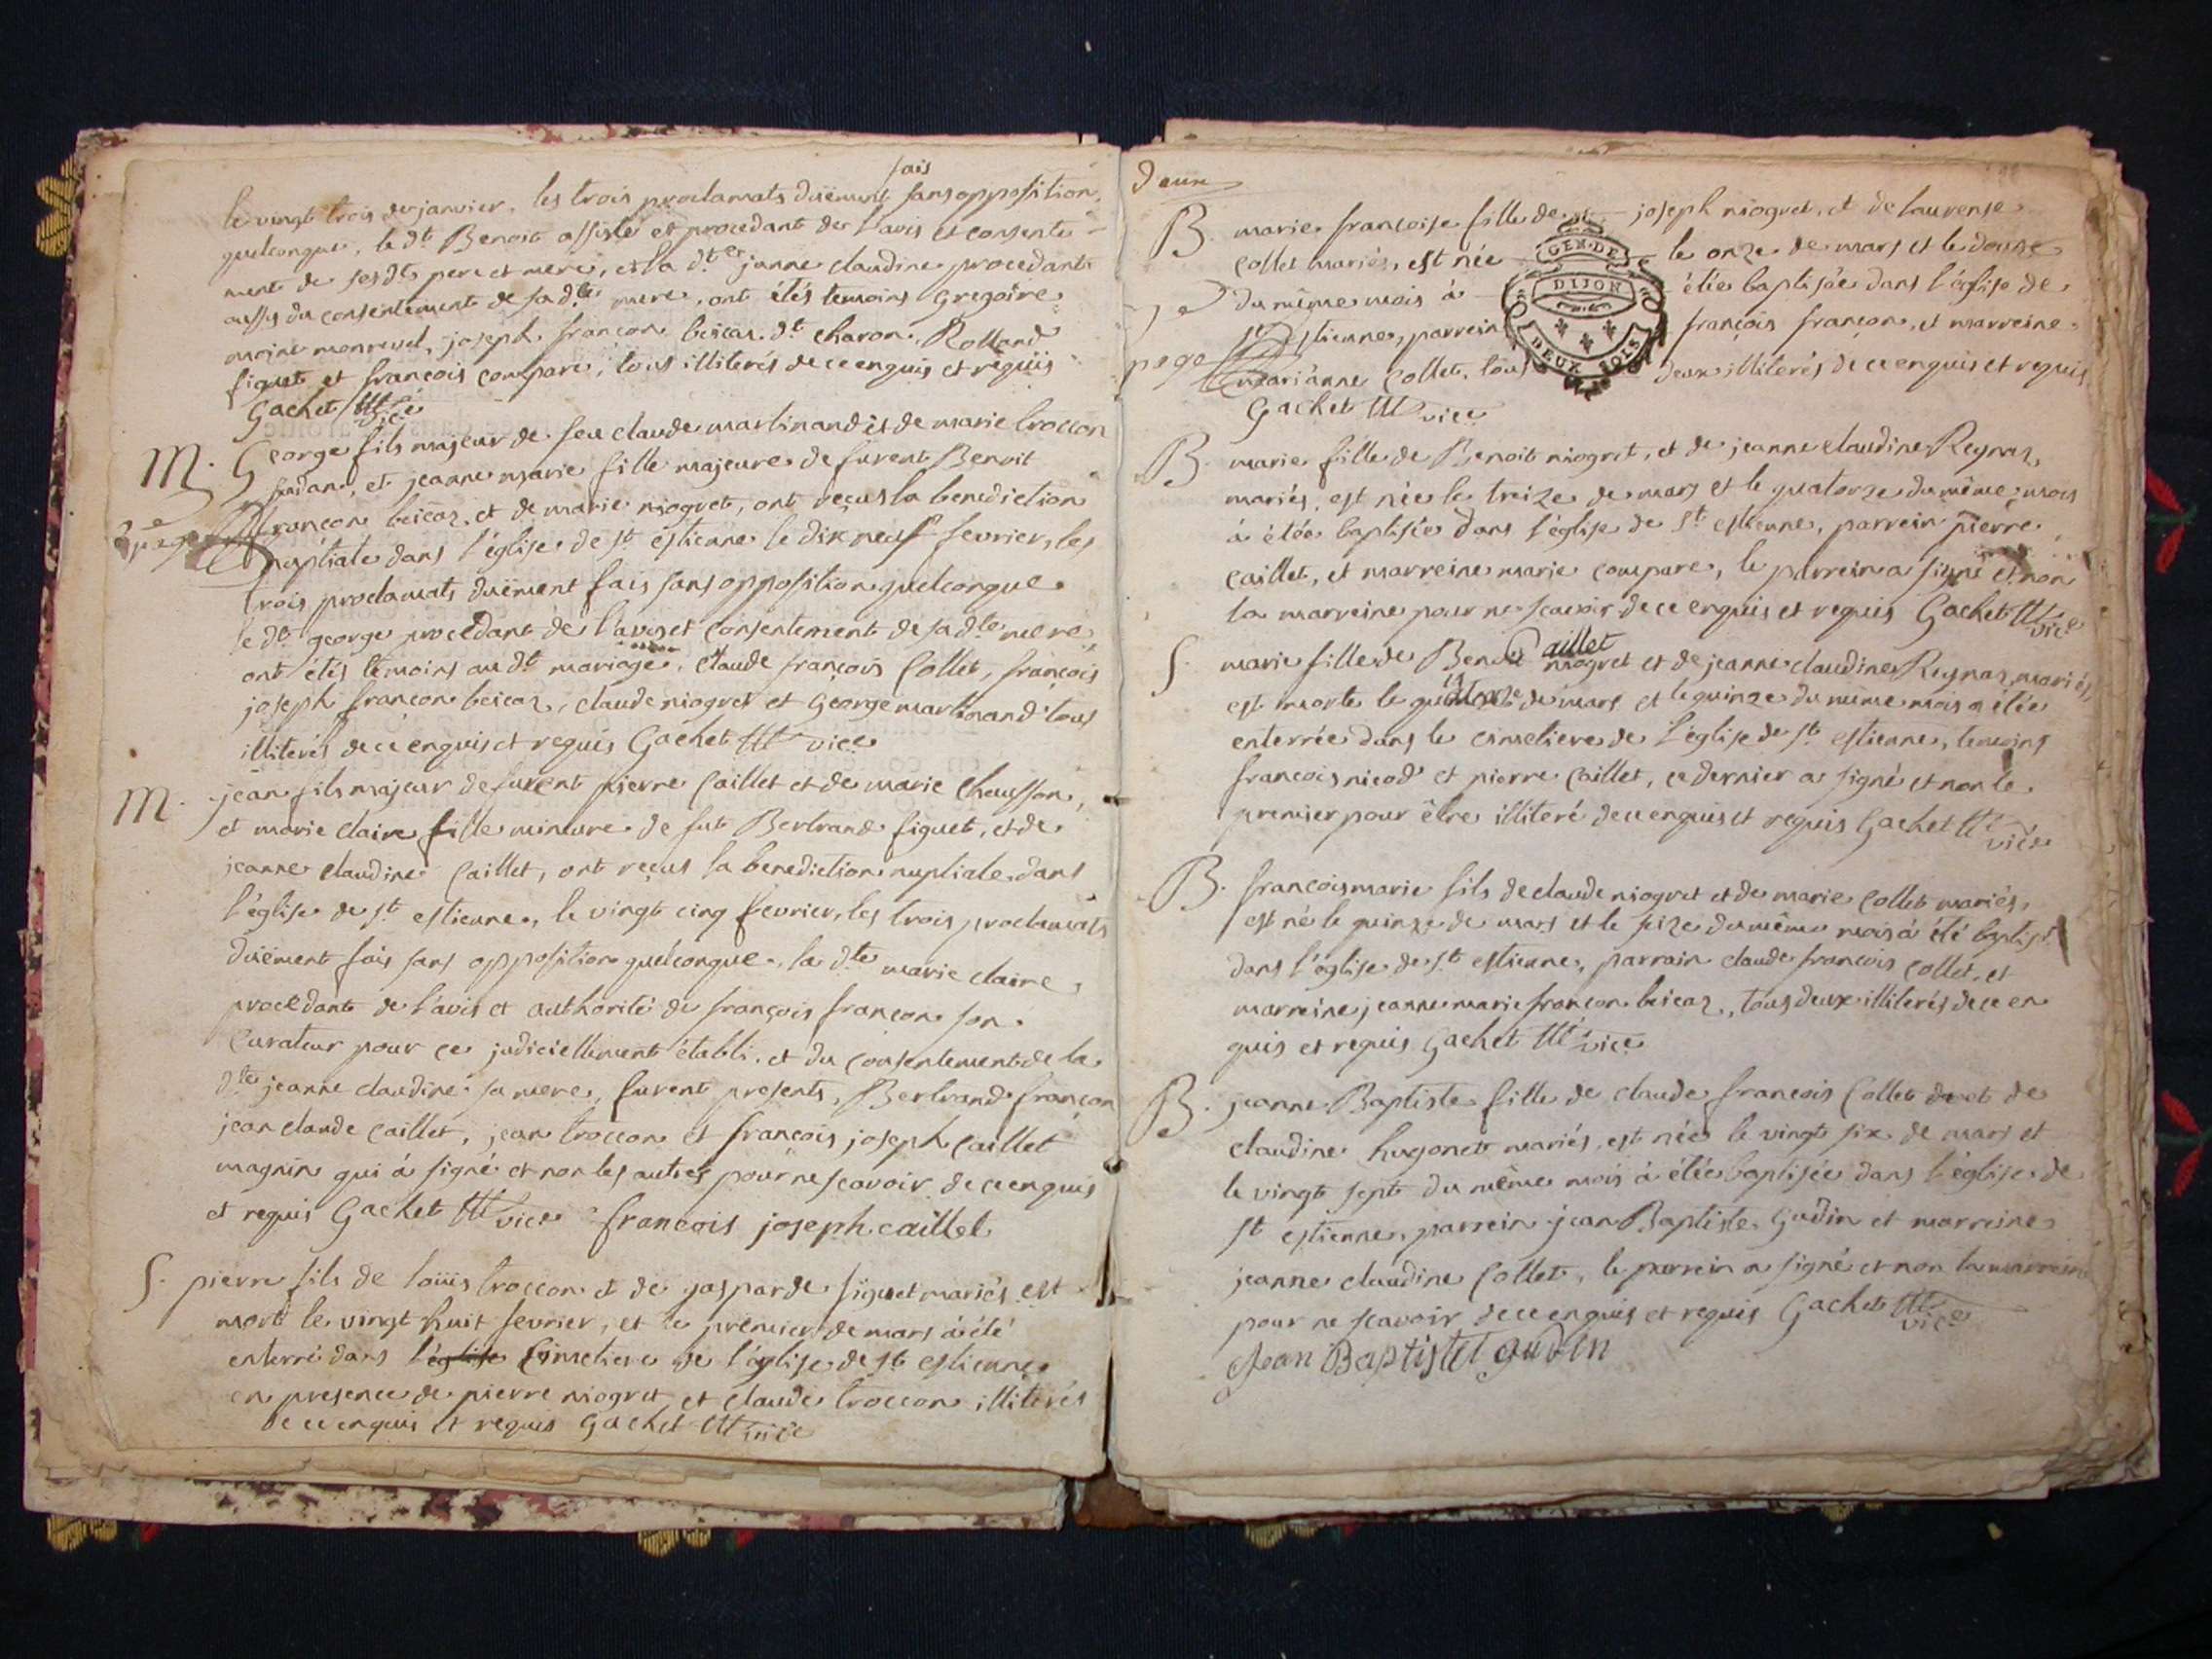 fais
le vingt trois de janvier, les trois proclamats düement sans opposition
quelconque, le dt Benoit assisté et procedant de l'avis et consente-
ment de ses dts pere et mere, et la dte janne claudine procedante
aussy du consentement de sa dte mere, ont étés temoins Gregoire
moine monrevel, joseph françon beicaz dt charon, Rolland
figuet et françois compare, tous illiterés de ce enquis et requis
Gachet vice
M. George fils majeur de feu claude martinand et de marie troccon
et jeanne marie fille majeure de furent Benoit
françon beicaz, et de marie niogret, ont reçus la benediction
2e page
nuptiale dans l'église de st estienne le dix neuf fevrier, les
trois proclamats düement fais sans opposition quelconque
le dt george procedant de l'avis et consentement de sa dte mere
ont étés temoins au dt mariage, Claude françois Collet, françois
joseph françon beicaz, claude niogret et George martinand tous
illiterés de ce enquis et requis Gachet vice
M. jean fils majeur de furent pierre Caillet et de marie Chausson,
et marie claire fille mineure de fut Bertrand figuet, et de
jeanne claudine Caillet, ont reçus la benediction nuptiale dans
l'église de st estienne, le vingt cinq fevrier, les trois proclamats
düement fais sans opposition quelconque, la dte marie claire
procedante de l'avis et authorité de françois françon son
Curateur pour ce judiciellement établi, et du consentement de la
dte jeanne claudine sa mere, furent presents, Bertrand françon
jean claude Caillet, jean troccon et françois joseph Caillet
magnin qui á signé et non les autres pour ne scavoir de ce enquis
et requis Gachet vice francois joseph caillet
S. pierre fils de loüis troccon et de gasparde figuet mariés est
mort le vingt huit fevrier, et le premier de mars á été
enterré dans l'église Cimetiere de l'église de st estienne
en presence de pierre niogret et claude troccon illiterés
de ce enquis et requis Gachet vice
deux
B. marie françoise fille de joseph niogret, et de laurense
Collet mariés, est née le onze de mars et le douze
du même mois á étée baptisée dans l'église de
st Estienne, parrein françois françon, et marreine
page
marianne Collet, tous deux illiterés de ce enquis et requis
Gachet vice
GEN. DE
DIJON
DEUX SOLS
B. marie fille de Benoit niogret, et de jeanne claudine Reynaz
mariés, est née le treize de mars et le quatorze du même mois
á étée baptisée dans l'église de st estienne, parrein pierre
caillet, et marreine marie compare, le parrein a signé et non
la marreine pour ne scavoir de ce enquis et requis Gachet vice
Caillet
S. marie fille de Benoit niogret et de jeanne claudine Reynaz mariés,
est morte le quatorze de mars et le quinze du même mois a étée
enterrée dans le cimetiere de l'église de st estienne, temoins
francois nicod et pierre Caillet, ce dernier a signé et non le
premier pour être illiteré de ce enquis et requis Gachet vice
B. francois marie fils de claude niogret et de marie Collet mariés,
est né le quinze de mars et le seize du même mois á été baptisé
dans l'église de st estienne, parrain claude francois Collet, et
marreine jeanne marie françon beicaz, tous deux illiterés de ce en
quis et requis Gachet vice
B. jeanne Baptiste fille de claude francois Collet et de
claudine hugonet mariés, est née le vingt six de mars et
le vingt sept du même mois á étée baptisée dans l'église de
st estienne, parrein jean Baptiste Gudin et marreine
jeanne claudine Collet, le parrein a signé et non la marreine
pour ne scavoir de ce enquis et requis Gachet vice
Jean Baptiste gudin